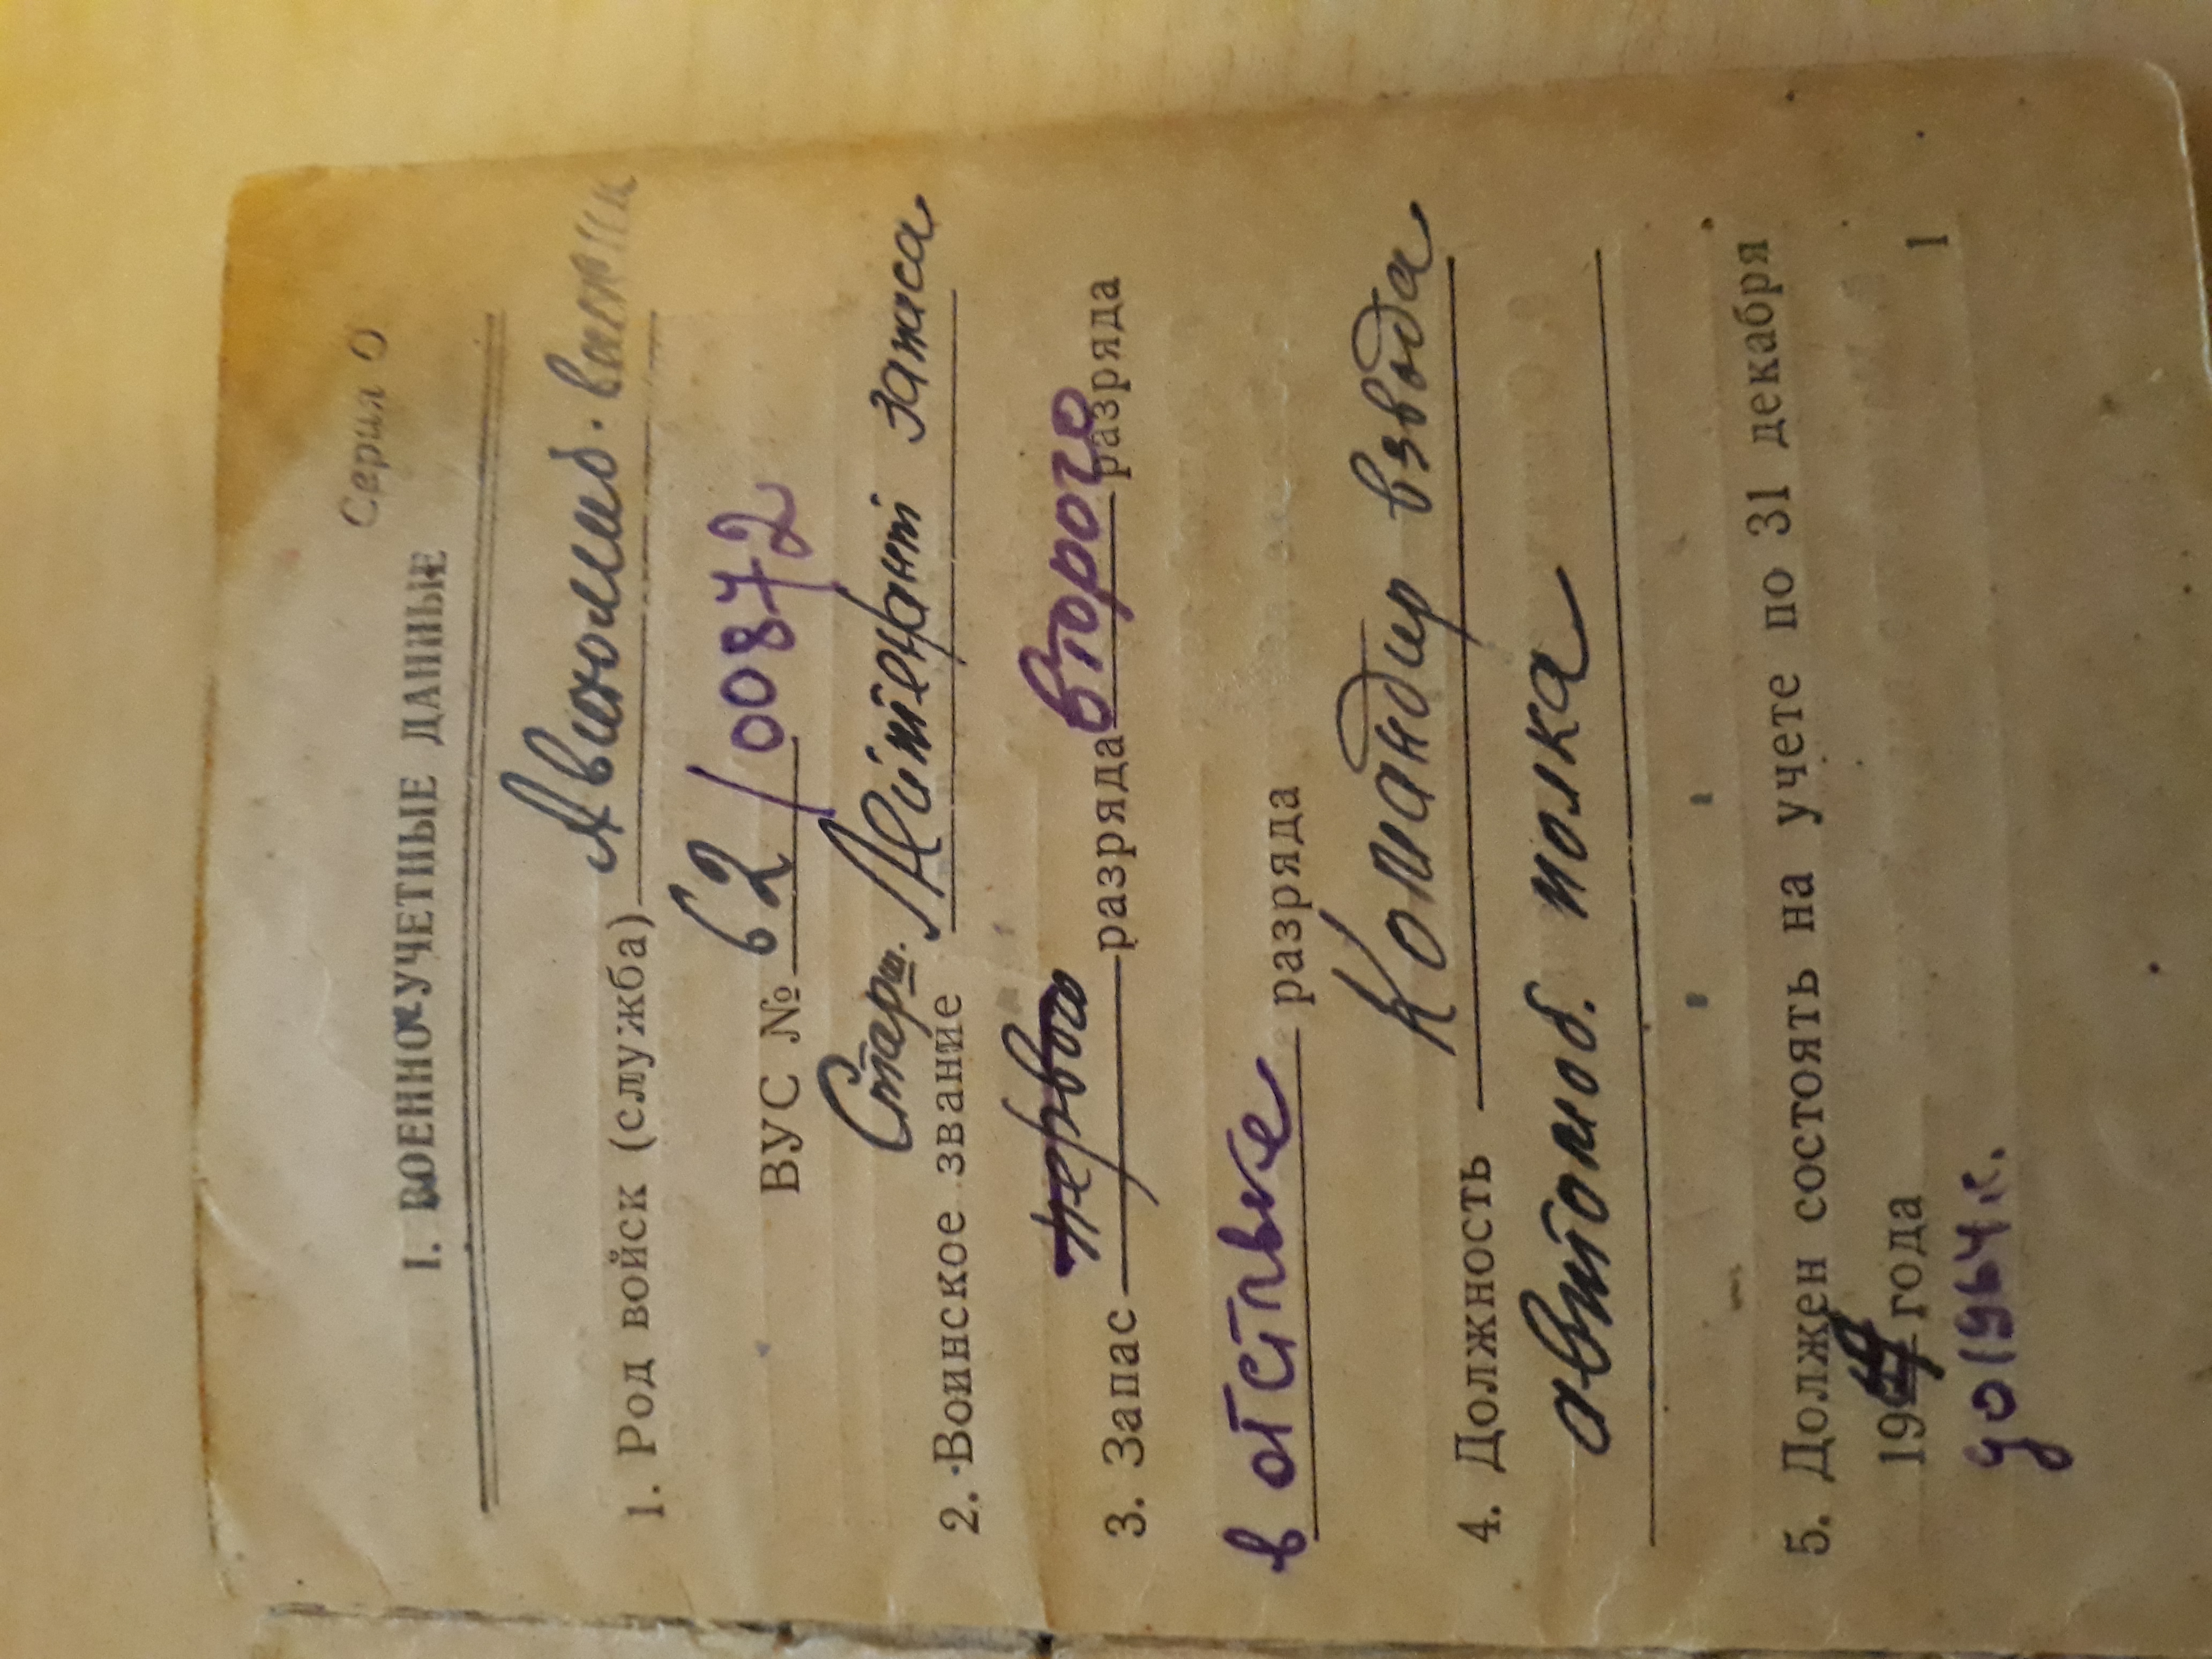 Серия О
I. ВОЕННО-УЧЕТНЫЕ ДАННЫЕ
1. Род войск (служба) Автомоб.
ВУС № 62/00872
Старш.
2. Воинское звание Лейтенант запаса
3. Запас первого разряда второго разряда
в отставке разряда
4. Должность Командир взвода
автомоб. полка
5. Должен состоять на учете по 31 декабря
19 года
1